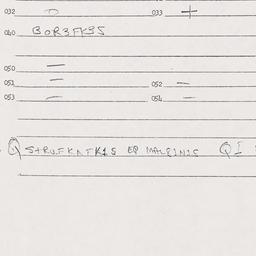 032 — 033 +
040 BOR3FK35
050 —
051 — 052 —
053 — 054 —
Q STRUFKAFK1S EQ MALQIN1S QI